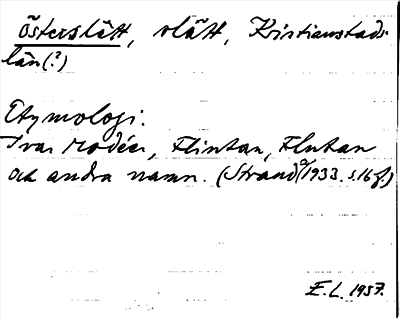 Österslätt, slätt, Kristianstads
län(?)
Etymologi.
Ivar Modéer, Flintan, Flutan
och andra namn. (Strand 1933. s.16 f.)
E.L. 1957.